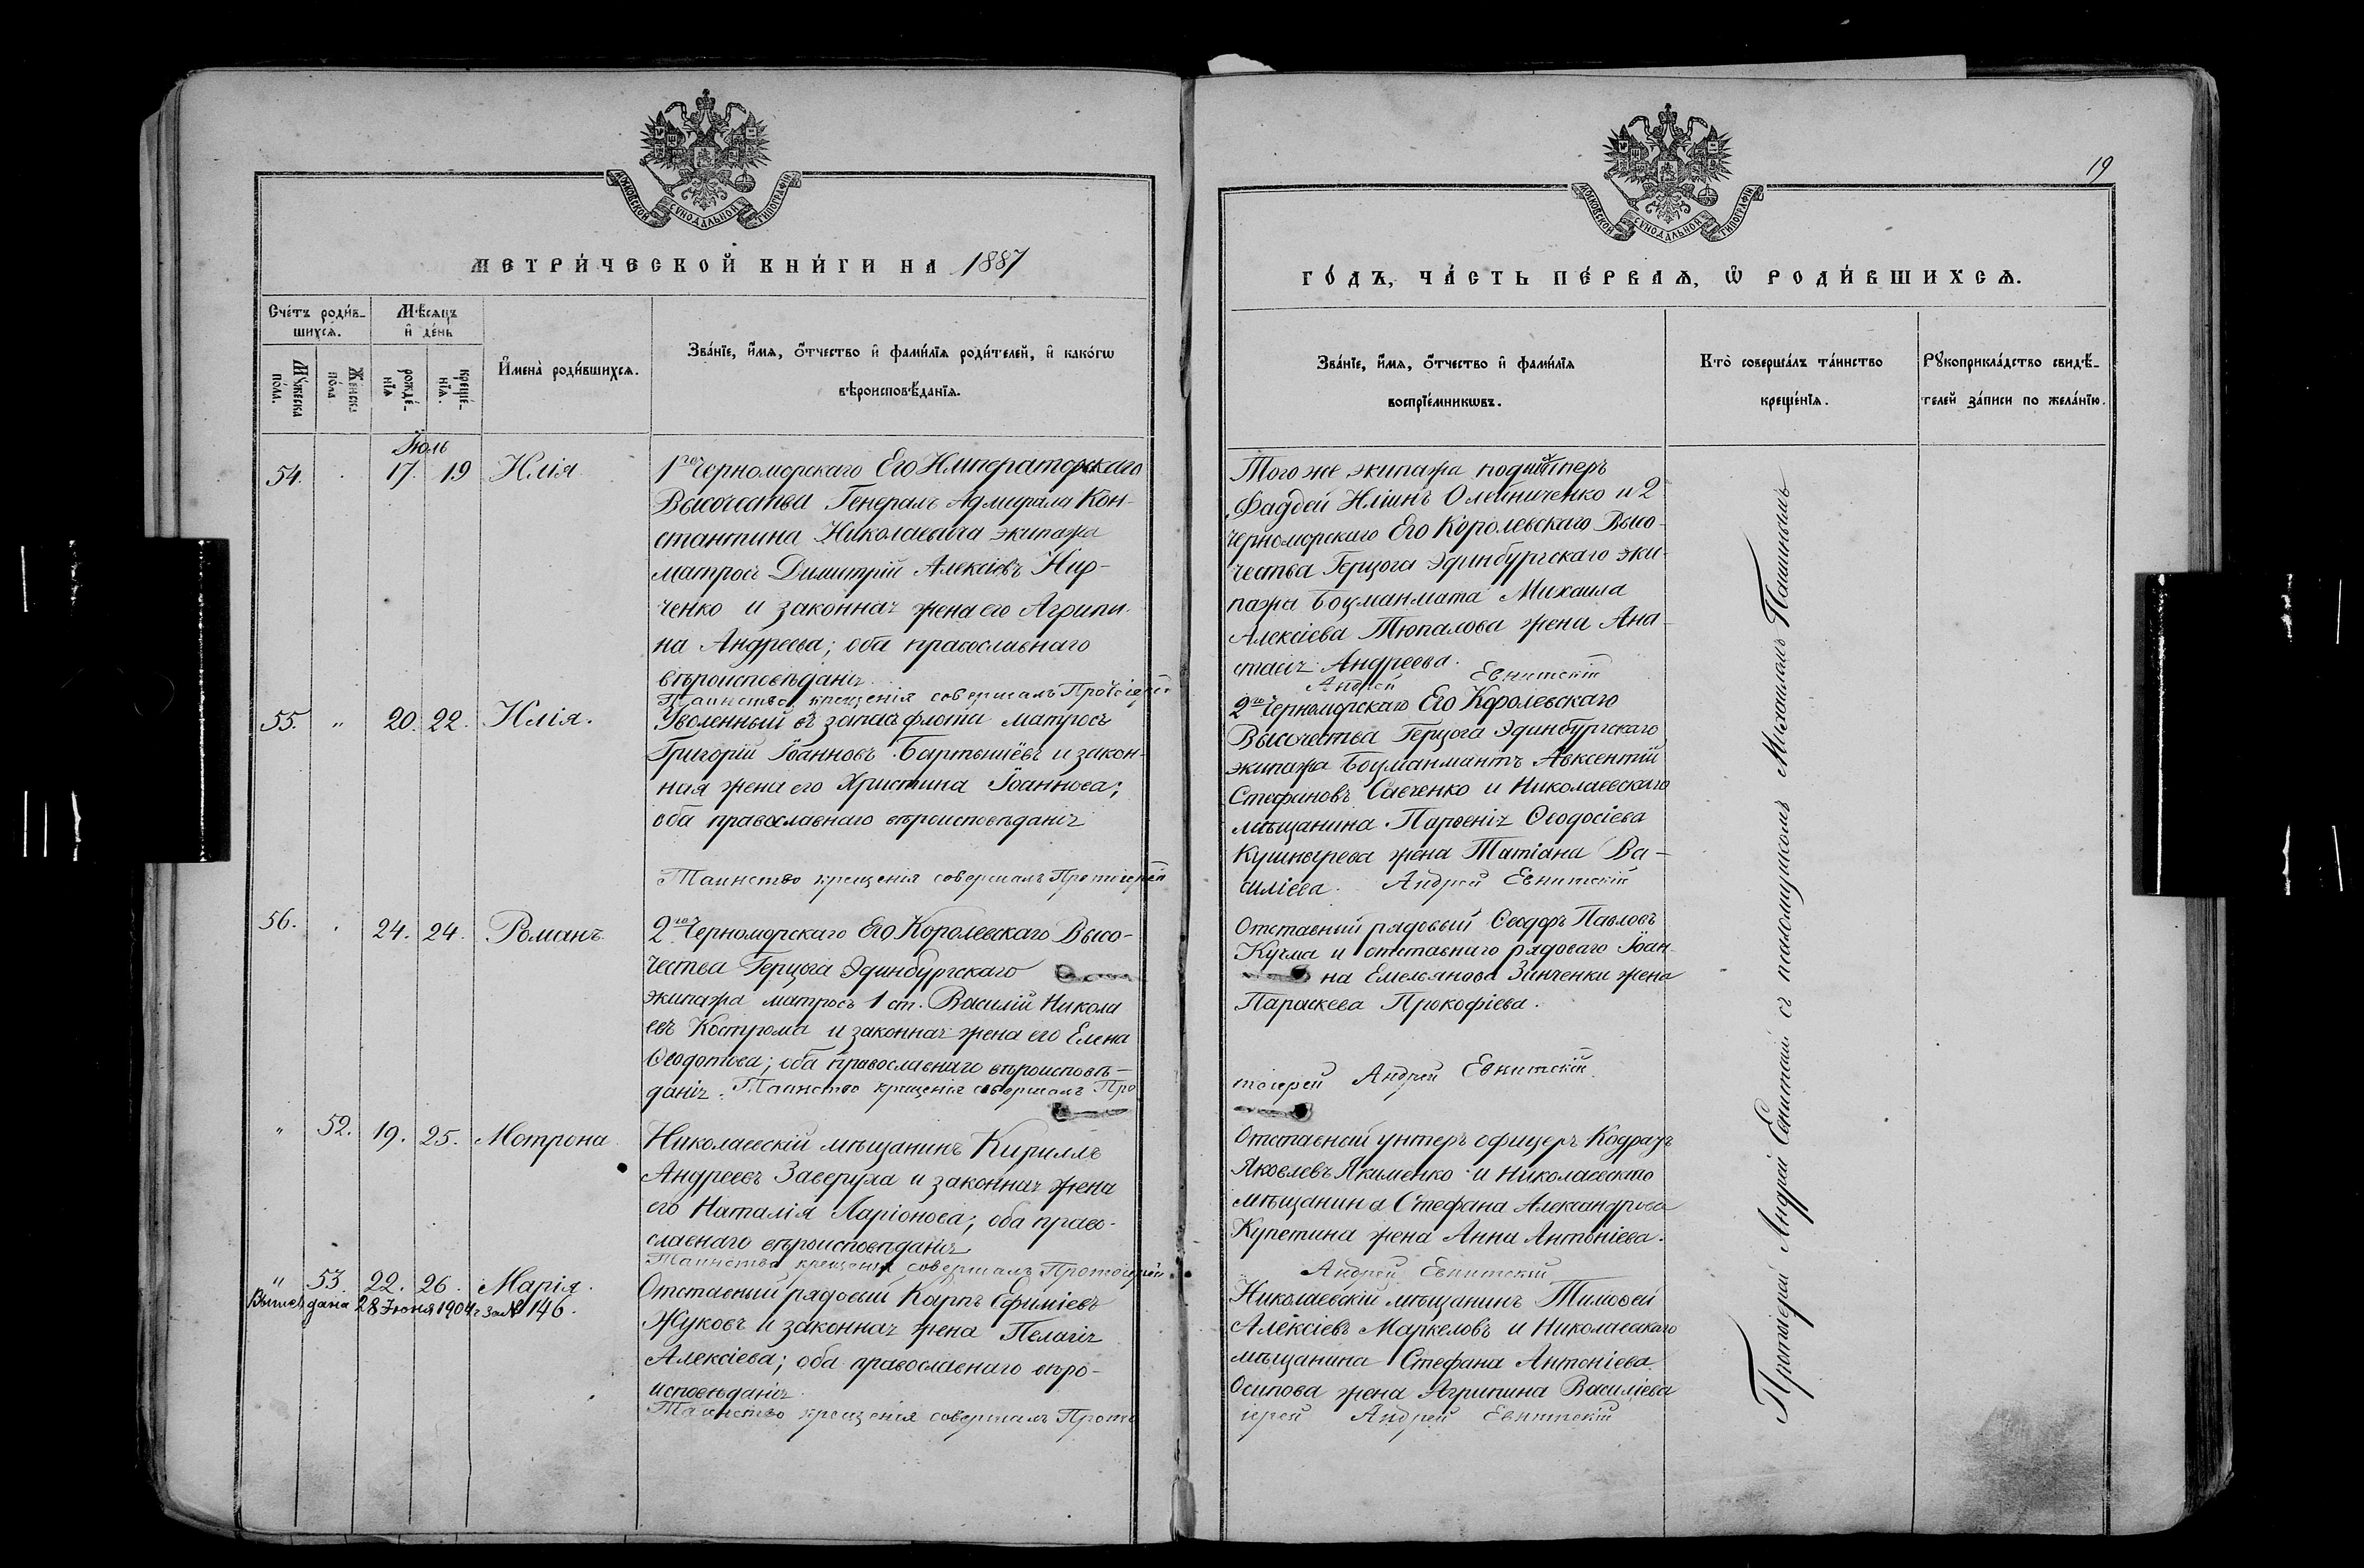 МОСКОВСКОЙ СѴНОДАЛЬНОЙ ТИПОГРАФІИ
МЕТРИ́ЧЕСКОЙ КНИ́ГИ НА 1887
Сче́тъ роди́в-
шихсѧ.
Мѣ́сѧцъ
и҆ де́нь
Мꙋ́жеска
по́ла.
Же́нска
по́ла
рожде́-
нїѧ
креще́-
нїѧ.
И҆мена̀ роди́вшихсѧ.
Зва́нїе, и҆́мѧ, ѻ҆́тчество и҆ фами́лїѧ роди́телей, и҆ како́гѡ
вѣроисповѣ́данїѧ.
Іюль
54. 17. 19 Илія.
1го Черноморскаго Его Императорскаго
Высочества Генералъ Адмирала Кон-
стантина Николаевича экипажа
матросъ Димитрій Алексіевъ Нир-
ченко и законная жена его Агрипи-
на Андреева; оба православнаго
вѣроисповѣданія
Таинство крещенія совершалъ Протоіерей
55. " 20. 22. Илія.
Уволенный въ запасъ флота матросъ
Григорій Іоанновъ Бартышёвъ и закон-
ная жена его Христина Іоаннова;
оба православнаго вѣроисповѣданія
Таинство крещенія совершалъ Протоіерей
56. 24. 24. Романъ.
2го Черноморскаго Его Королевскаго Высо-
чества Герцога Эдинбургскаго
экипажа матросъ 1 ст. Василій Никола
евъ Кострома и законная жена его Елена
Ѳеодотова; оба православнаго вѣроисповѣ-
данія. Таинство крещенія совершалъ Про
" 52. 19. 25. Мотрона
Николаевскій мѣщанинъ Кириллъ
Андреевъ Заверуха и законная жена
его Наталія Ларіонова; оба право-
славнаго вѣроисповѣданія
Таинство крещенія совершалъ Протоіерей
" 53. 22. 26. Марія.
Выпись дана 28 Іюня 1904 г за № 146.
Отставный рядовый Карпъ Ефиміевъ
Жуковъ и законная жена Пелагія
Алексіева; оба православнаго вѣро-
исповѣданія.
Таинство крещенія совершалъ Прото
19
МОСКОВСКОЙ СѴНОДАЛЬНОЙ ТИПОГРАФІИ
ГО́ДЪ, ЧА́СТЬ ПЕ́РВАѦ, Ѡ҆ РОДИ́ВШИХСѦ.
Зва́нїе, и҆́мѧ, ѻ҆́тчество и҆ фами́лїѧ
воспрїе́мникѡвъ.
Кто̀ соверша́лъ та́инство
креще́нїѧ.
Рꙋкоприкла́дство свидѣ́-
телей за́писи по жела́нїю.
Того же экипажа подшкиперъ
Фаддей Иліинъ Олейниченко и 2
Черноморскаго Его Королевскаго Высо-
чества Герцога Эдинбургскаго эки-
пажа Боцманмата Михаила
Алексіева Тюпалова жена Ана-
стасія Андреева.
Андрей Евнитскій
2го Черноморскаго Его Королевскаго
Высочества Герцога Эдинбургскаго
экипажа Боцманматъ Авксентій
Стефановъ Савченко и Николаевскаго
мѣщанина Парѳенія Ѳеодосіева
Кушнырева жена Татіана Ва-
силіева. Андрей Евнитскій
Отставный рядовый Ѳеодоръ Павловъ
Кучма и отставнаго рядоваго Іоан-
на Емельянова Зинченки жена
Параскева Прокофіева.
тоіерей Андрей Евнитскій
Отставной унтеръ офицеръ Кодратъ
Яковлевъ Якименко и Николаевскаго
мѣщанина Стефана Александрова
Купетина жена Анна Антоніева.
Андрей Евнитскій
Николаевскій мѣщанинъ Тимоѳей
Алексіевъ Маркеловъ и Николаевскаго
мѣщанина Стефана Антоніева
Осипова жена Агрипина Василіева
іерей Андрей Евнитскій
Протоіерей Андрей Евнитскій съ псаломщикомъ Михаиломъ